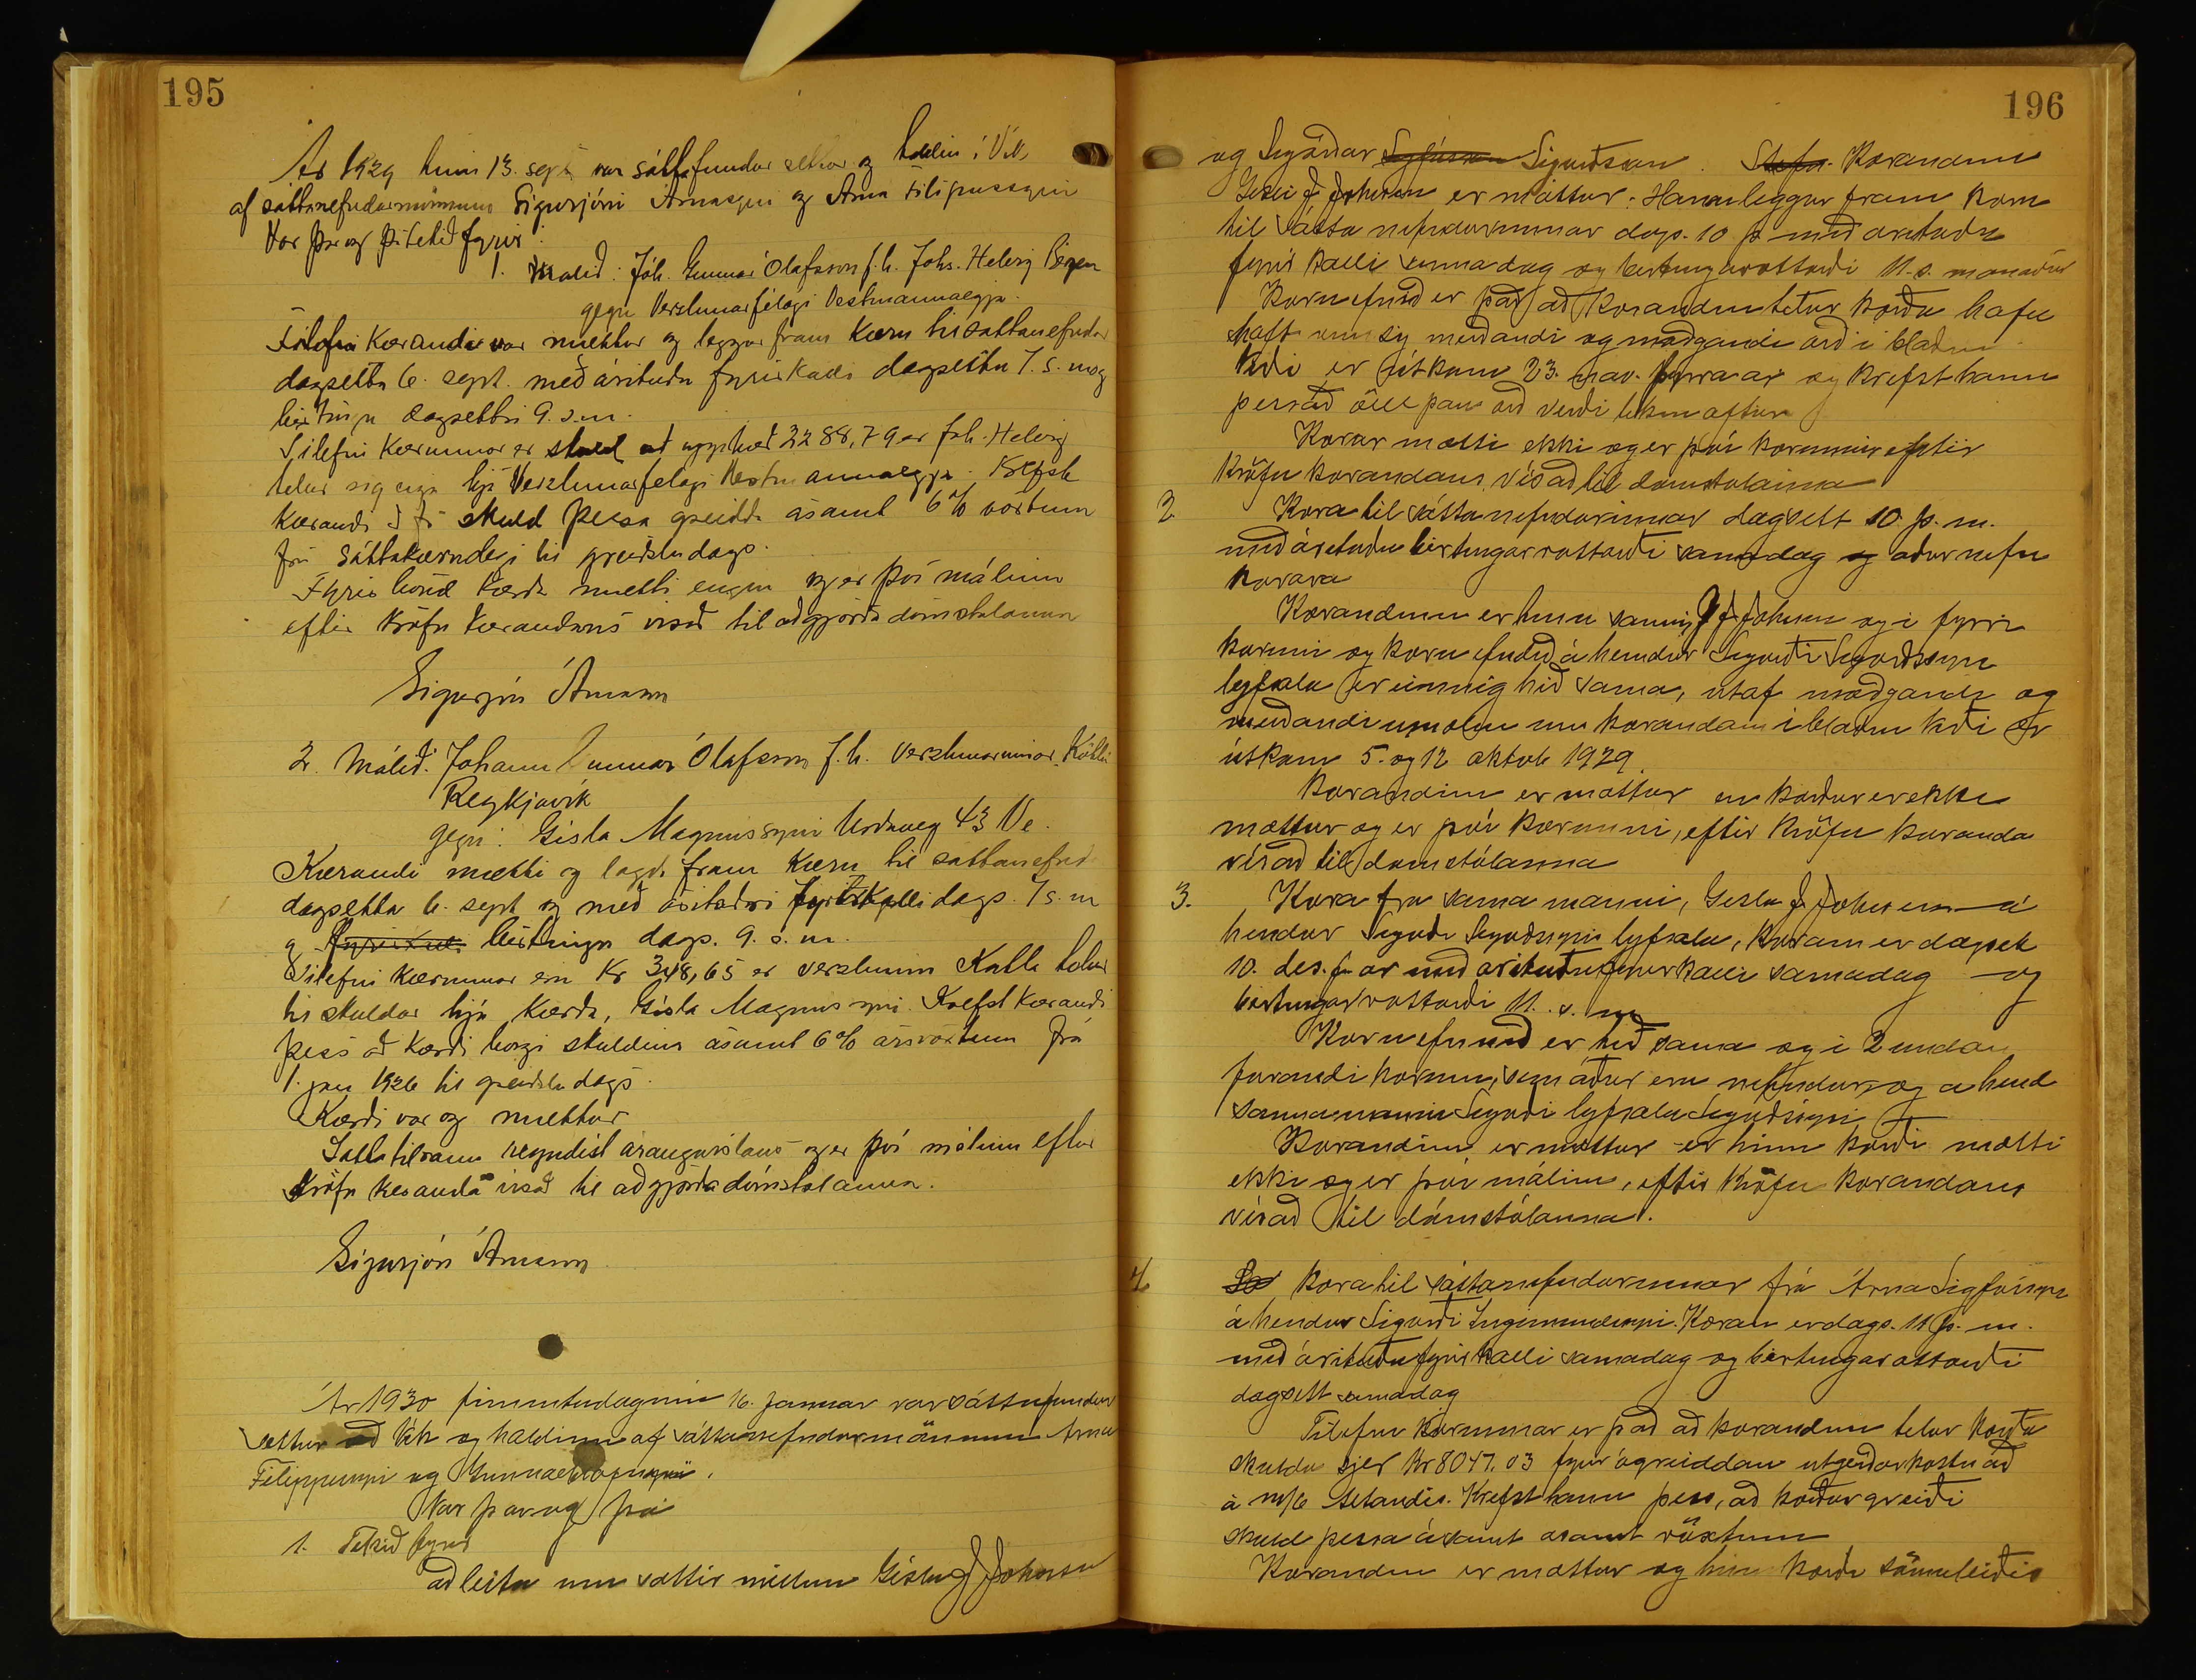 195
Ár 1929 hinn 13. sept var sáttafundur settur og haldin í Vík,
af sáttanefndarmönnum Sigurjóni Árnasyni og Árna Filipussyni
Var þar og þá tekið fyrir:
1. Málið: Jóh. Gunnar Ólafsson f.h. Johs. Helvig Bergen
gegn Verzlunarfélagi Vestmannaeyja.
Kærandi var mættur og leggur fram kæru til sáttanefndar
dagsetta 6. sept. með árituðu fyrirkalli dagsettu 7. s. m og
birtingu dagsettri 9. s.m.
Tilefni kærunnar er skuld að upphæð 3288,79 er Joh. Helvig
telur sig eiga hjá Verzlunarfélagi Vestmannaeyja. Krefst
kærandi að fá skuld þessa greidda ásamt 6% vöxtum
frá sáttakærudegi til greiðsludags.
Fyrir hönd kærða mætti enginn og er því málinu
eftir kröfu kærandans vísað til aðgjörða dómstólanna
Sigurjón Árnason
2. Málið: Johann Gunnar Ólafsson f.h. verzlunarinnar Katla
Reykjavík
gegn: Gísla Magnússyni Urðaveg 43 Ve.
Kærandi mætti og lagði fram kæru til sáttanefnd
dagsetta 6. sept og með árituðu fyrirkalli dags. 7 s. m
og fyrirkal birtingu dags. 9. s. m.
Tilefni kærunnar eru Kr 348,65 er verzlunin Katla telur
til skuldar hjá kærða, Gísla Magnússyni. Krefst kærandi
þess að kærði borgi skuldina ásamt 6% ársvöxtum frá
1. jan 1926 til greiðsludags.
Kærði var og mættur
Sáttatilraun reyndist árangurslaus og er því málinu eftir
kröfu kæranda vísað til aðgjörða dómstólanna.
Sigurjón Árnason
Ár 1930 fimmtudaginn 16. Januar var sáttafundur
settur að Vík og haldinn af sáttanefndarmönnum Árna
Filippussyni og Gunnari Ólafssyni.
Var þar og þá
1. Tekið fyrir
að leita um sættir millum Gísla J Johnsen
196
og Sigurðar Sigfússon Sigurðsson. Stefn. Kærandinn
Gísli J. Johnsen er mættur. Hann leggur fram kæru
til sáttanefndarinnar dags. 10 þ með árituðu
fyrirkalli sama dag og birtingarvottorði 11. s. mánaðar
Kæruefnið er það að kærandinn telur kærða hafa
haft um sig meiðandi og móðgandi orð í blaðinu
Víði er útkom 23. nov. fyrra ár og krefst hann
þess að öll þau orð verði tekin aftur
Kærði mætti ekki og er því kærunni eftir
kröfu kærandans vísað til dómstólanna
2. Kæra til sáttanefndarinnar dagsett 10. þ. m.
með árituðu birtingarvottorði sama dag og áður nefn
kæra
Kærandinn er hinn sami G J Johnsen og í fyrri
kærunni og kæruefnið á hendur Sigurði Sigurðssyni
lyfsala er einnig hið sama, útaf móðgandi og
meiðandi ummælum um kærandann í blaðinu Víði er
útkom 5. og 12 oktob 1929.
Kærandinn er mættur en kærður er ekki
mættur og er því kærunni, eftir kröfu kæranda
vísað til dómstólanna
3. Kæra frá sama manni, Gísla J. Johnsen á
hendur Sigurði Sigurðssyni lyfsala, kæran er dagsett
10. des. f. ár með árituðu fyrirkalli sama dag og
birtingarvottorði 11. s. m
Kæruefnið er hið sama og í 2 undan
farandi kærum, sem áður eru nefndar, og á hend
sama manni Sigurði lyfsala Sigurðssyni
Kærandinn er mættur en hinn kærði mætti
ekki og er því málinu, eftir kröfu kærandans
vísað til dómstólanna.
4. Kæra til sáttanefndarinnar frá Árna Sigfússyni
á hendur Sigurði Ingimundssyni. Kæran er dags. 11 þ. m.
með árituðu fyrirkalli sama dag og birtingarvottorði
dagsett sama dag
Tilefni kærunnar er það að kærandinn telur kærða
skulda sjer Kr 8047.03 fyrir ógreiddan útgerðarkostnað
á m/b Helandir. Krefst hann þess, að kærður greiði
skuld þessa ásamt asamt vöxtum
Kærandinn er mættur og hinn kærði sömuleiðis